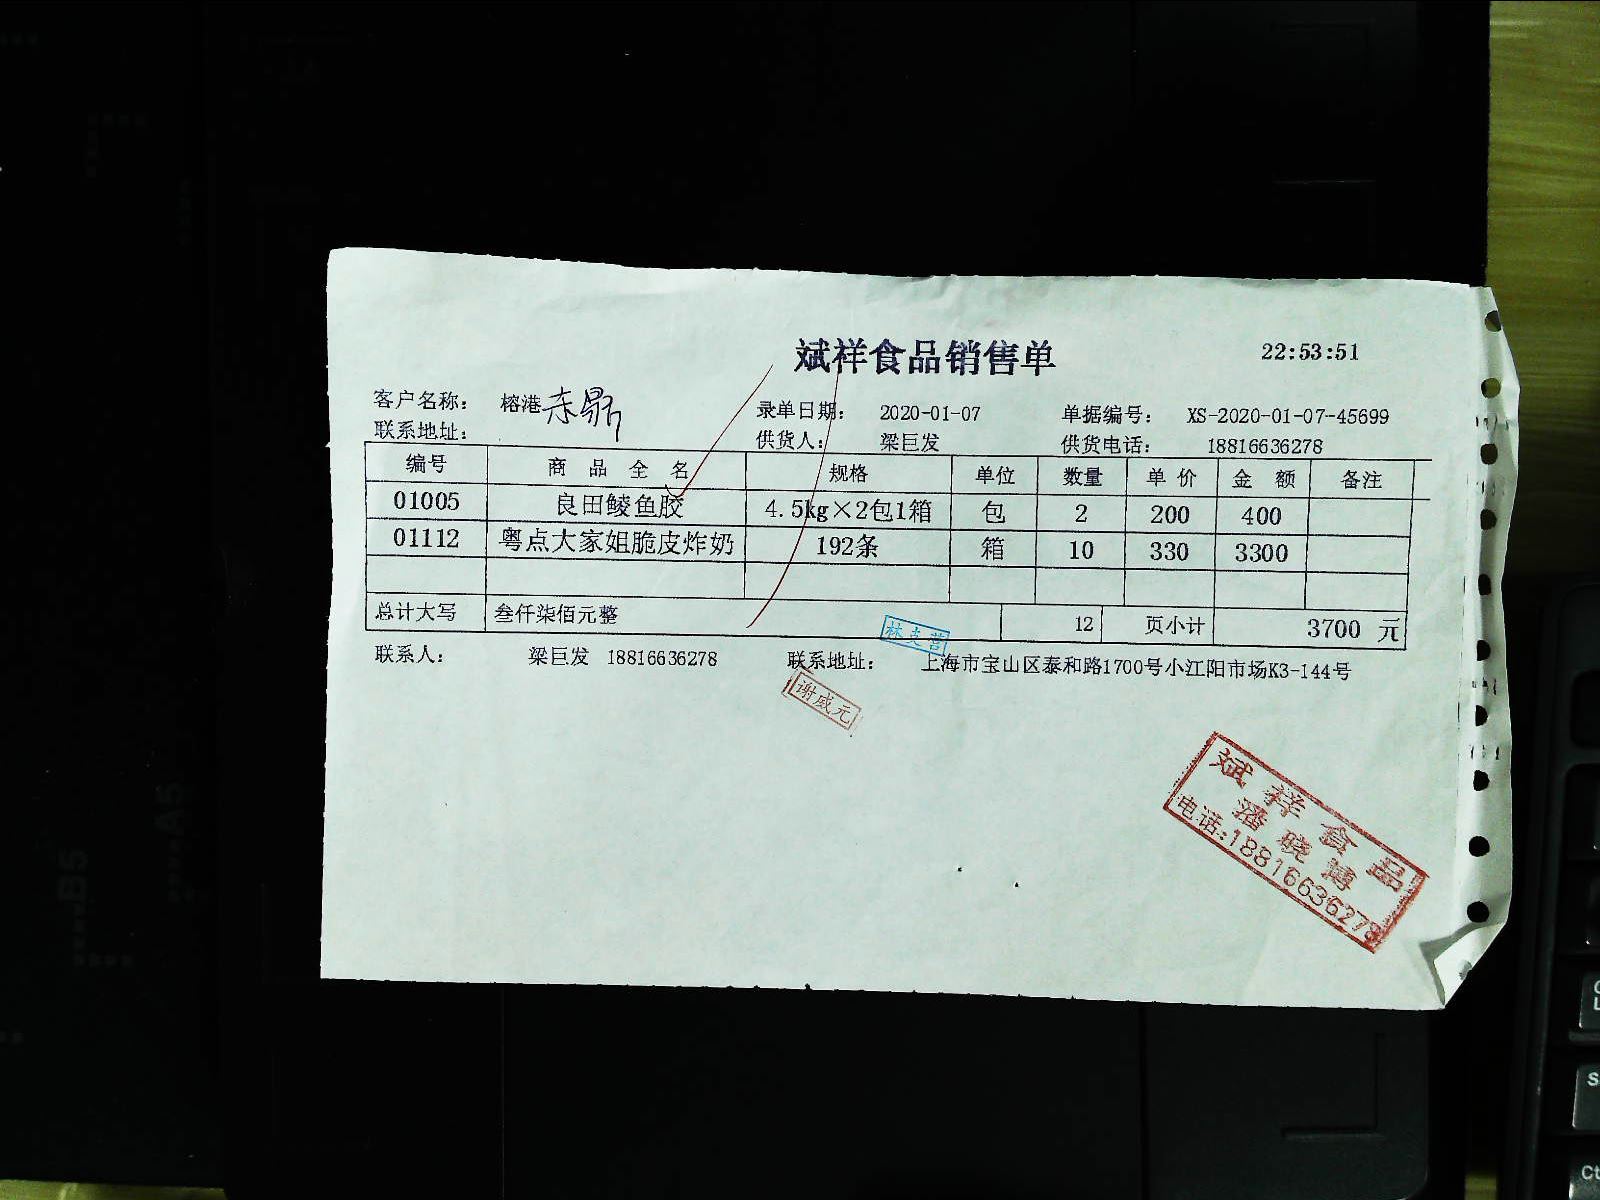 斌祥食品销售单 22:53:51
客户名称： 榕港 录单日期： 2020-01-07 单据编号： XS-2020-01-07-45699
联系地址： 供货人： 梁巨发 供货电话： 18816636278
编号 商品全名 规格 单位 数量 单价 金额 备注
01005 良田鲮鱼胶 4.5kg×2包1箱 包 2 200 400
01112 粤点大家姐脆皮炸奶 192条 箱 10 330 3300
总计大写 叁仟柒佰元整 12 页小计 3700 元
联系人： 梁巨发 18816636278 联系地址： 上海市宝山区泰和路1700号小江阳市场K3-144号
谢威元
斌祥食品
潘晓博
电话:18816636278
B5
A5